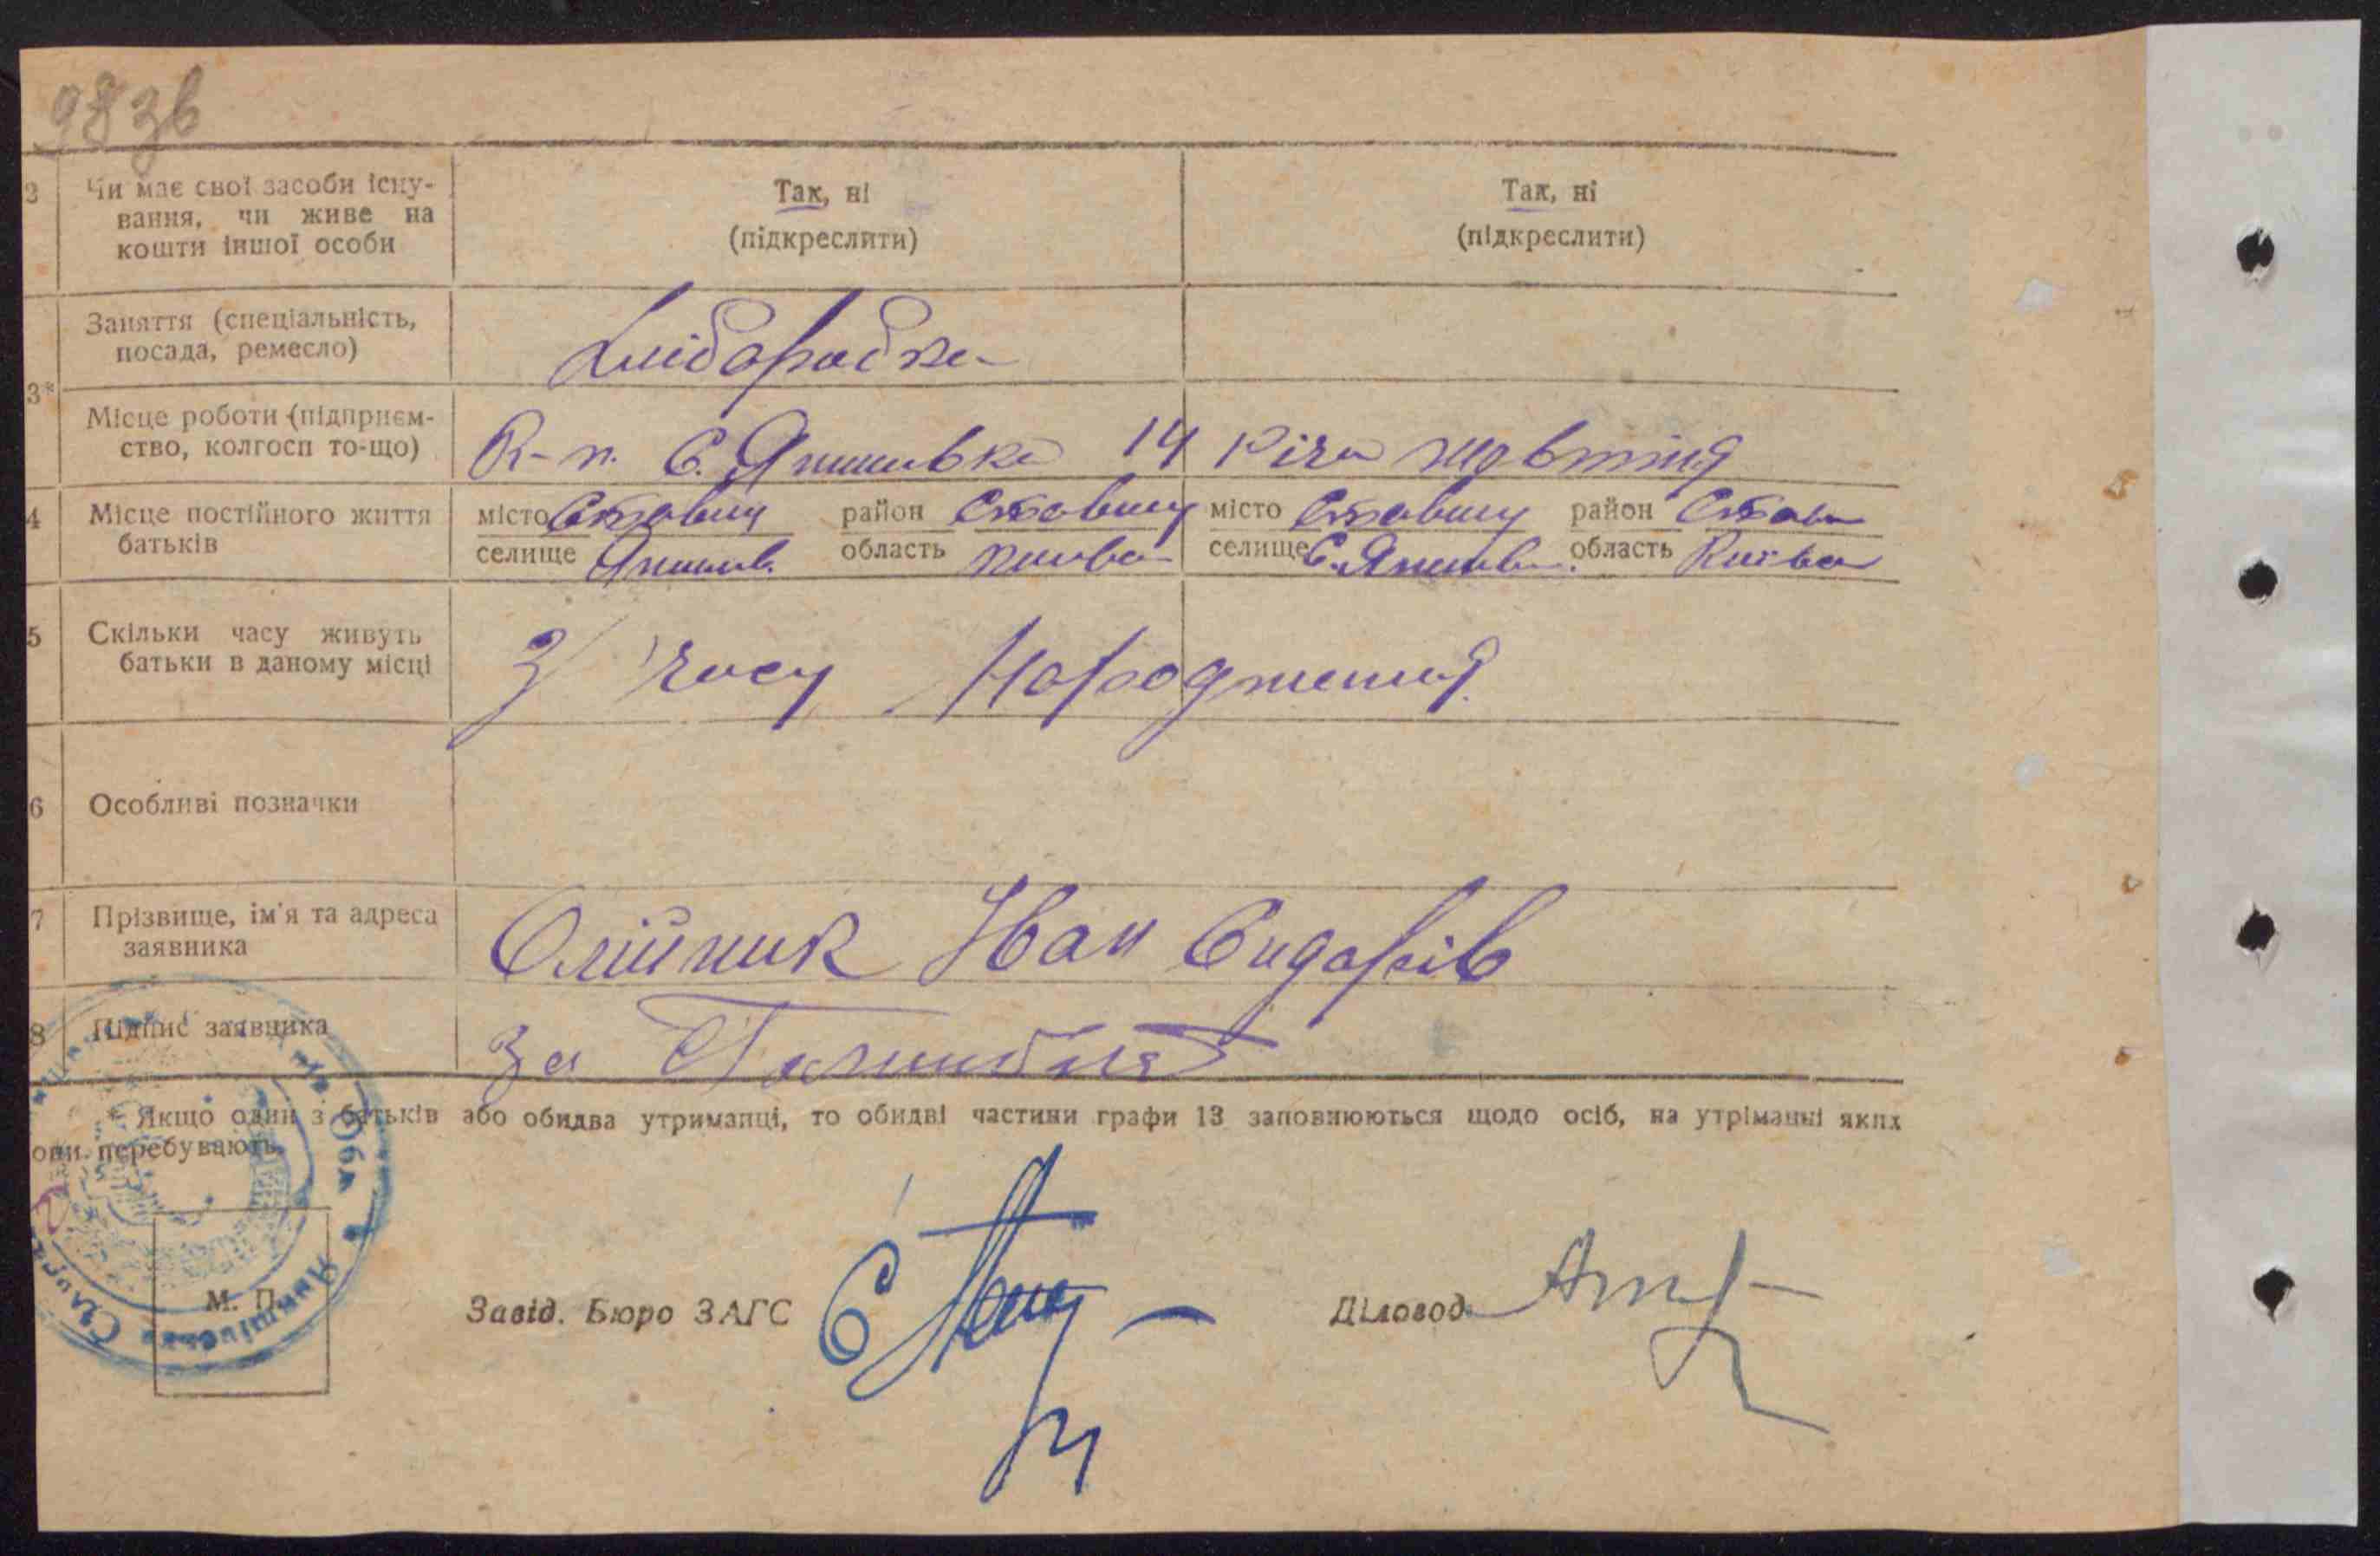 983в
2 Чи має свої засоби існу-
вання, чи живе на
кошти іншої особи
Так, ні
(підкреслити)
Так, ні
(підкреслити)
Заняття (спеціальність,
посада, ремесло)
Хліборобка
3*
Місце роботи (підприєм-
ство, колгосп то-що)
К-п. С. Яншівка 14 річч жовтня
4 Місце постійного життя
батьків
місто Ставищ район Ставищ
селище область
місто Ставищ район Став
селище область Київсь
5 Скільки часу живуть
батьки в даному місці
З часу народження
6 Особливі позначки
7 Прізвище, ім'я та адреса
заявника
Олійник Іван Сидорів
8 Підпис заявника
За
* Якщо один з батьків або обидва утриманці, то обидві частини графи 13 заповнюються щодо осіб, на утріманні яких
они перебувають.
М. П.
Завід. Бюро ЗАГС
Діловод